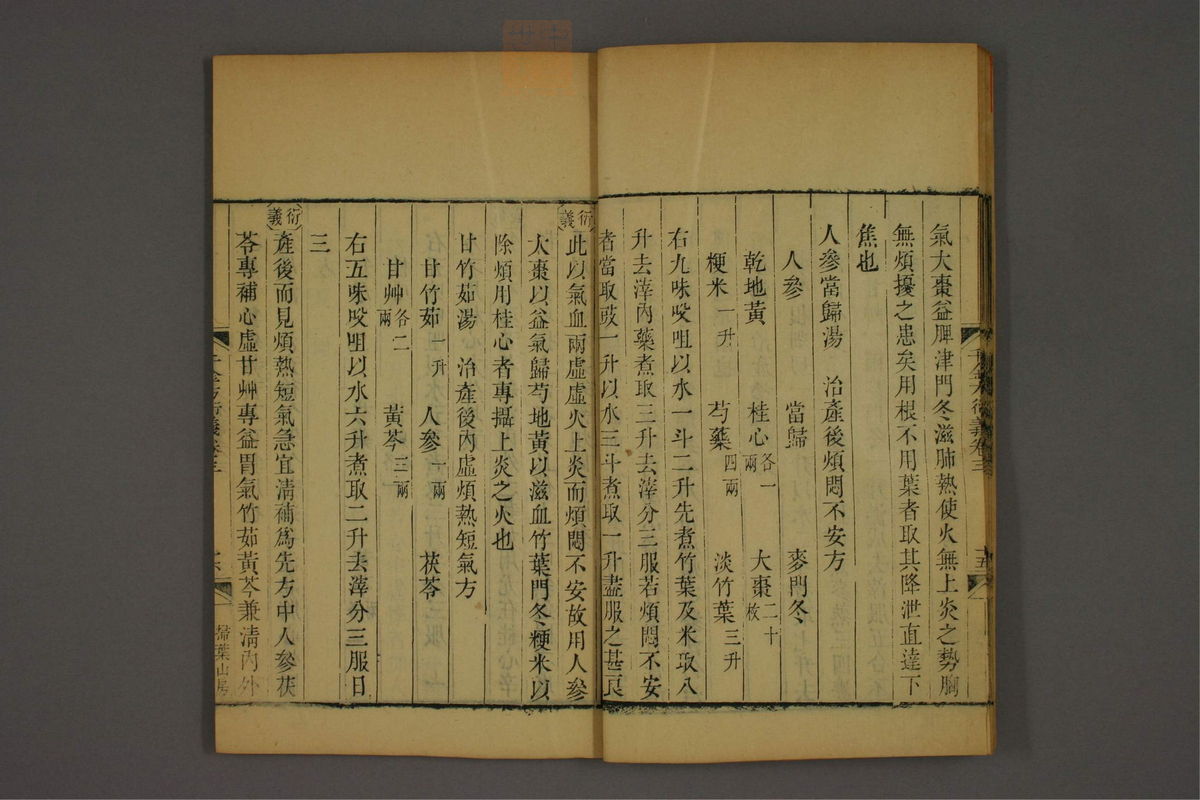 氣大棗益脾津門冬滋肺熱使火無上炎之勢胸
無煩擾之患矣用根不用葉者取其降泄直達下
焦也
人參當歸湯 治產後煩悶不安方
人參 當歸 麥門冬
乾地黃 桂心各一兩 大棗二十枚
粳米一升 芍藥四兩 淡竹葉三升
右九味㕮咀以水一斗二升先煮竹葉及米取八
升去滓內藥煮取三升去滓分三服若煩悶不安
者當取豉一升以水三斗煮取一升盡服之甚良
衍義
此以氣血兩虛虛火上炎而煩悶不安故用人參
大棗以益氣歸芍地黃以滋血竹葉門冬粳米以
除煩用桂心者專攝上炎之火也
甘竹茹湯 治產後內虛煩熱短氣方
甘竹茹一升 人參一兩 茯苓
甘艸各二兩 黃芩三兩
右五味㕮咀以水六升煮取二升去滓分三服日
三
衍義
產後而見煩熱短氣急宜清補為先方中人參茯
苓專補心虛甘艸專益胃氣竹茹黃芩兼清內外
掃葉山房